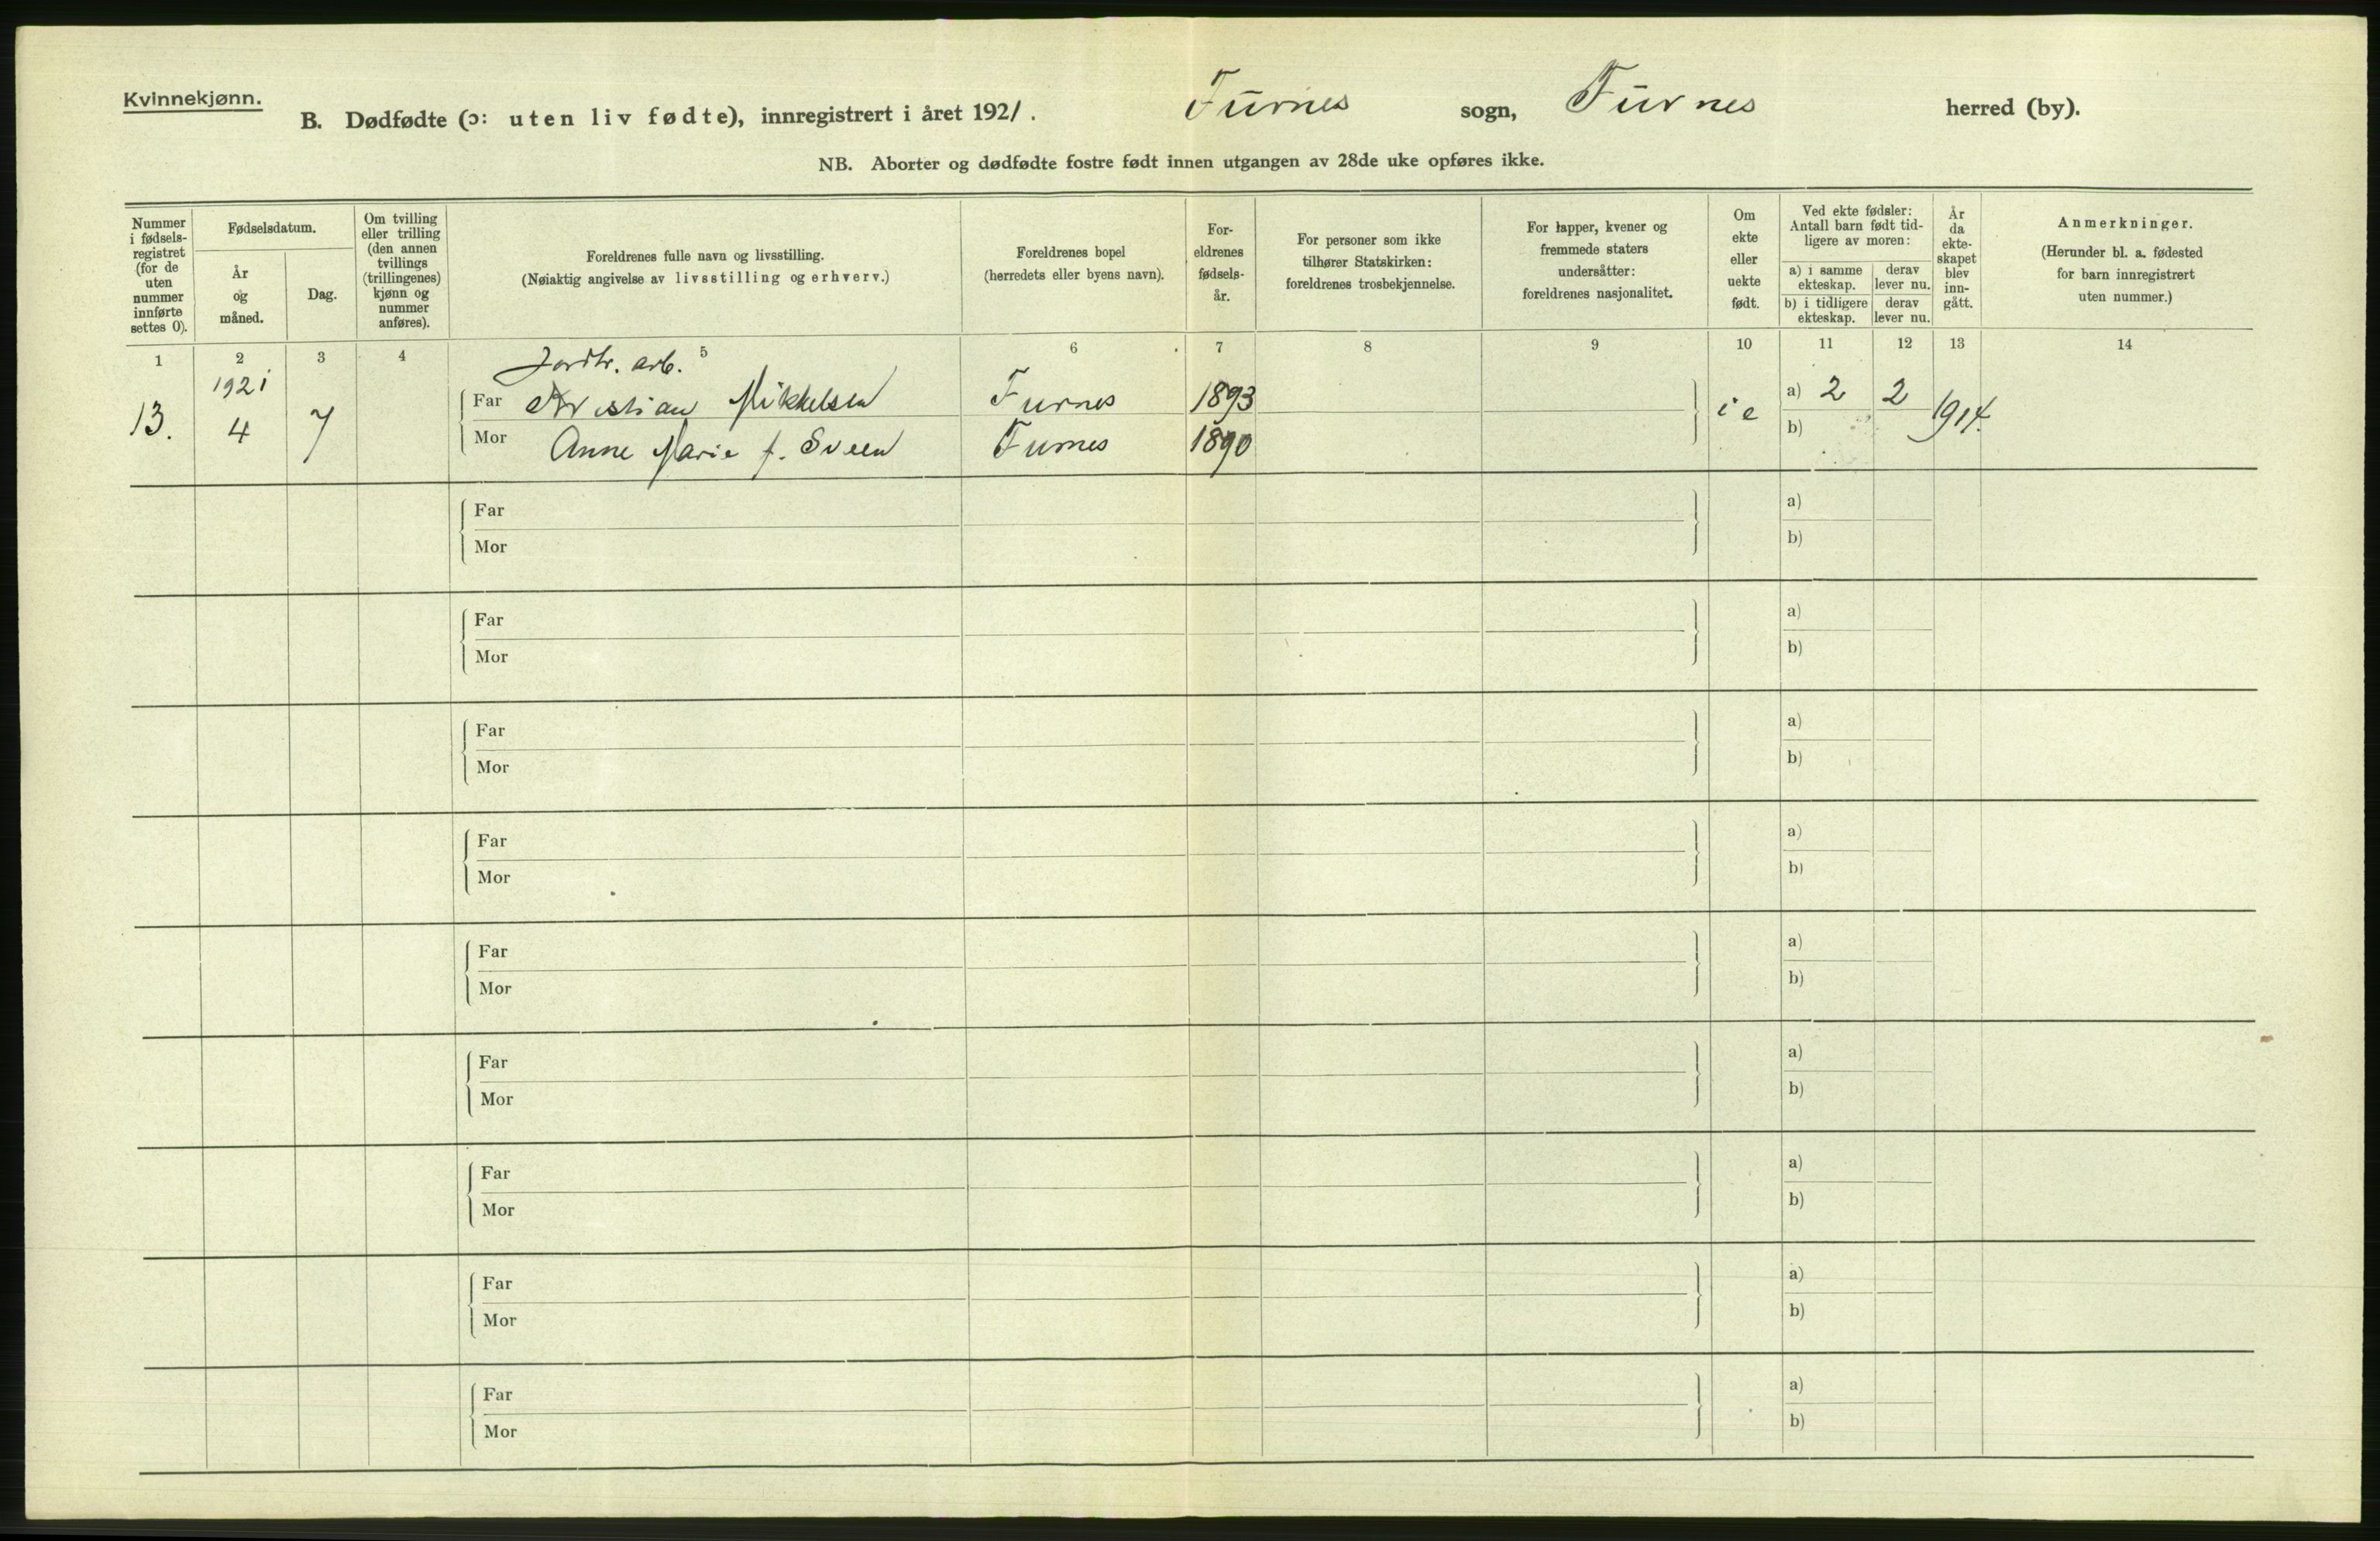 Kvinnekjønn.
B. Dødfødte (ɔ: uten liv fødte), innregistrert i året 1921. Furnes sogn, Furnes herred (by).
NB. Aborter og dødfødte fostre født innen utgangen av 28de uke opføres ikke.
Nummer
i fødsels-
registret
(for de
uten
nummer
innførte
settes 0).
Fødselsdatum.
År
og
måned.
Dag.
Om tvilling
eller trilling
(den annen
tvillings
(trillingenes)
kjønn og
nummer
anføres).
Foreldrenes fulle navn og livsstilling.
(Nøiaktig angivelse av livsstilling og erhverv.)
Foreldrenes bopel
(herredets eller byens navn).
For-
eldrenes
fødsels-
år.
For personer som ikke
tilhører Statskirken:
foreldrenes trosbekjennelse.
For lapper, kvener og
fremmede staters
undersåtter:
foreldrenes nasjonalitet.
Om
ekte
eller
uekte
født.
Ved ekte fødsler:
Antall barn født tid-
ligere av moren:
a) i samme
ekteskap.
derav
lever nu.
b) i tidligere
ekteskap.
derav
lever nu.
År
da
ekte-
skapet
blev
inn-
gått.
Anmerkninger.
(Herunder bl. a. fødested
for barn innregistrert
uten nummer.)
1 2 3 4 5 6 7 8 9 10 11 12 13 14
Jordbr. arb.
13. 1921 4 7
Far Kristian Mikkelsen Furnes 1893 i e a) 2 2 1914.
Mor Anne Marie f. Sveen Furnes 1890 b)
Far a)
Mor b)
Far a)
Mor b)
Far a)
Mor b)
Far a)
Mor b)
Far a)
Mor b)
Far a)
Mor b)
Far a)
Mor b)
Far a)
Mor b)
Far a)
Mor b)